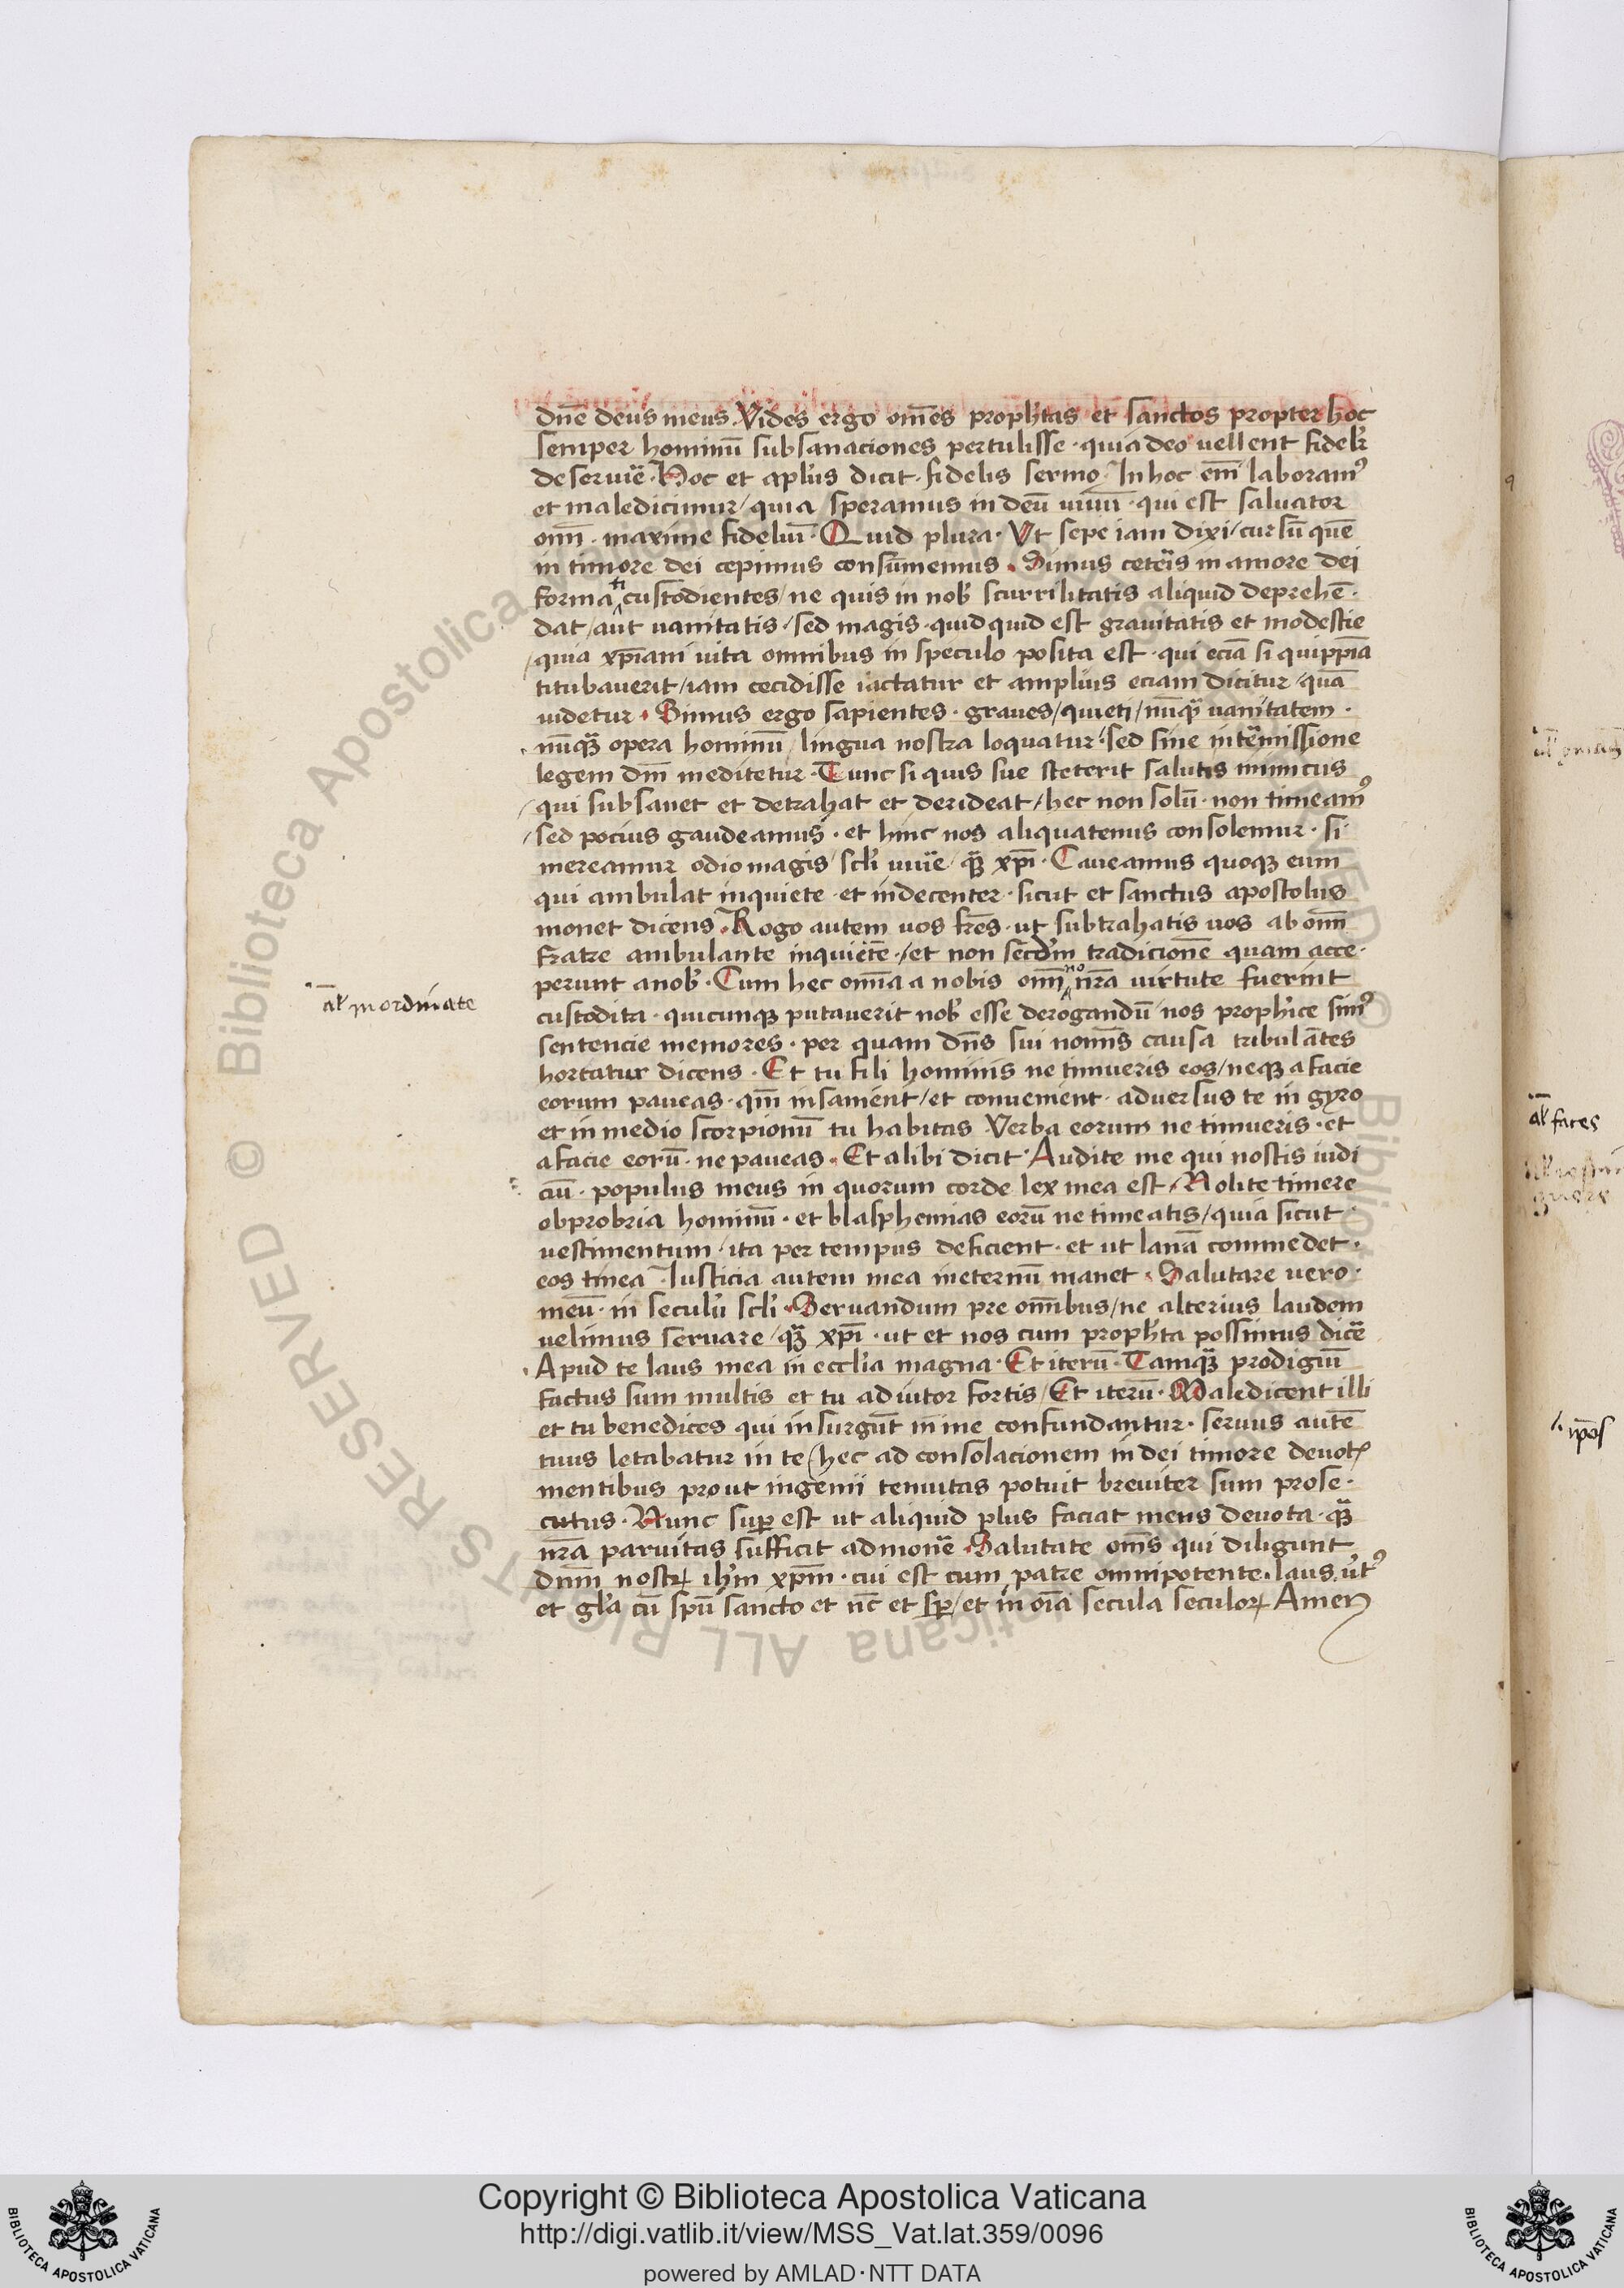 dn̄e deus meus. Vides ergo om̄es proph̄tas et sanctos propter hoc
semper hominū subsanaciones pertulisse · quia deo vellent fidelr̄
deservir̄e. Hoc et apl̄us dicit · fidelis sermo. In hoc em̄ laboram⁹
et maledicimur / quia speramus in deū vivū · qui est salvator
om̄ · maxime fideliū. Quid plura · Vt sepe iam dixi / cursū quē
in timore dei cepimus consum̄emus. Simus ceteris in amore dei
forma fi custodientes / ne quis in nob̄ scurrilitatis aliquid deprehē ·
dat / aut vanitatis / sed magis · quid quid est gravitatis et modestie
/ quia xp̄iani vita omnibus in speculo posita est · qui eciā si quippiā
titubaverit / iam cecidisse iactatur et amplius eciam dicitur / quā
videtur. Simus ergo sapientes · graves / quieti / nūq̄ vanitatem ·
nūq̄ opera hominū / lingua nostra loquatur / sed sine int̄missione
legem dn̄i meditetur. Tunc si quis sue steterit salutis inimicus
/ qui subsanet et detrahat et derideat / hec non solū · non timeam⁹
/ sed pocius gaudeamus · et hinc nos aliquatenus consolemur · si
mereamur odio magis / scl̄i vivē / q̄ xp̄i. Caveamus quoq̨ eum
qui ambulat inquiete · et indecenter · sicut et sanctus apostolus
monet dicens. Rogo autem vos fr̄es · ut subtrahatis vos ab om̄i
fratre ambulante inquiete · / et non secdm̄ tradicionē quam acce ·
perunt a nob̄. Cum hec om̄ia a nobis om̄i no nr̄a virtute fuerint
al̄ inordinate
custodita · quicunq̨ putaverit nob̄ esse derogandū / nos proph̄ice sim⁹
sentencie memores · per quam dn̄s sui nom̄is causa tribulātes
hortatur dicens. Et tu fili hominis ne timueris eos / neq̨ a facie
eorum paveas · qm̄ insanient / et convenient · adversus te in gyro
et in medio scorpionū tu habitas Verba eorum ne timueris · et
a facie eorū · ne paveas. Et alibi dicit. Audite me qui nostis iudi
ciū · populus meus in quorum corde lex mea est. Nolite timere
obprobria hominū · et blasphemias eorū ne timeatis / quia sicut ·
vestimentum / ita per tempus deficient · et ut lanā commedet ·
eos tinea. Iusticia autem mea in eternū manet. Salutare vero ·
meū · in seculū scl̄i. Servandum pre om̄ibus / ne alterius laudem
velimus servare / q̄ xp̄i · ut et nos cum proph̄ta possimus dicē
Apud te laus mea in eccl̄ia magna. Et iterū. Tamq̄ prodigiū
factus sum multis et tu adiutor fortis / Et iterū. Maledicent illi
et tu benedices qui insurgūt in me confundantur · servus autē
tuus letabatur in te / hec ad consolacionem in dei timore devotꝭ
mentibus prout ingenii tenuitas potuit breviter sum prose ·
cutus. Nunc sup̄ est ut aliquid plus faciat mens devota · q̄
nr̄a parvitas sufficit admonē. Salutate om̄s qui diligunt
dnm̄ nostrꝝ ih̄m xp̄m · cui est cum patre omnipotente. laus
et gl̄a cū spū sancto et nc̄ et sp̄ / et in oīa secula seculorꝝ Amen
al̄ fares
Copyright © Biblioteca Apostolica Vaticana
http://digi.vatlib.it/view/MSS_Vat.lat.359/0096
powered by AMLAD·NTT DATA
BIBLIOTECA APOSTOLICA VATICANA
BIBLIOTECA APOSTOLICA VATICANA